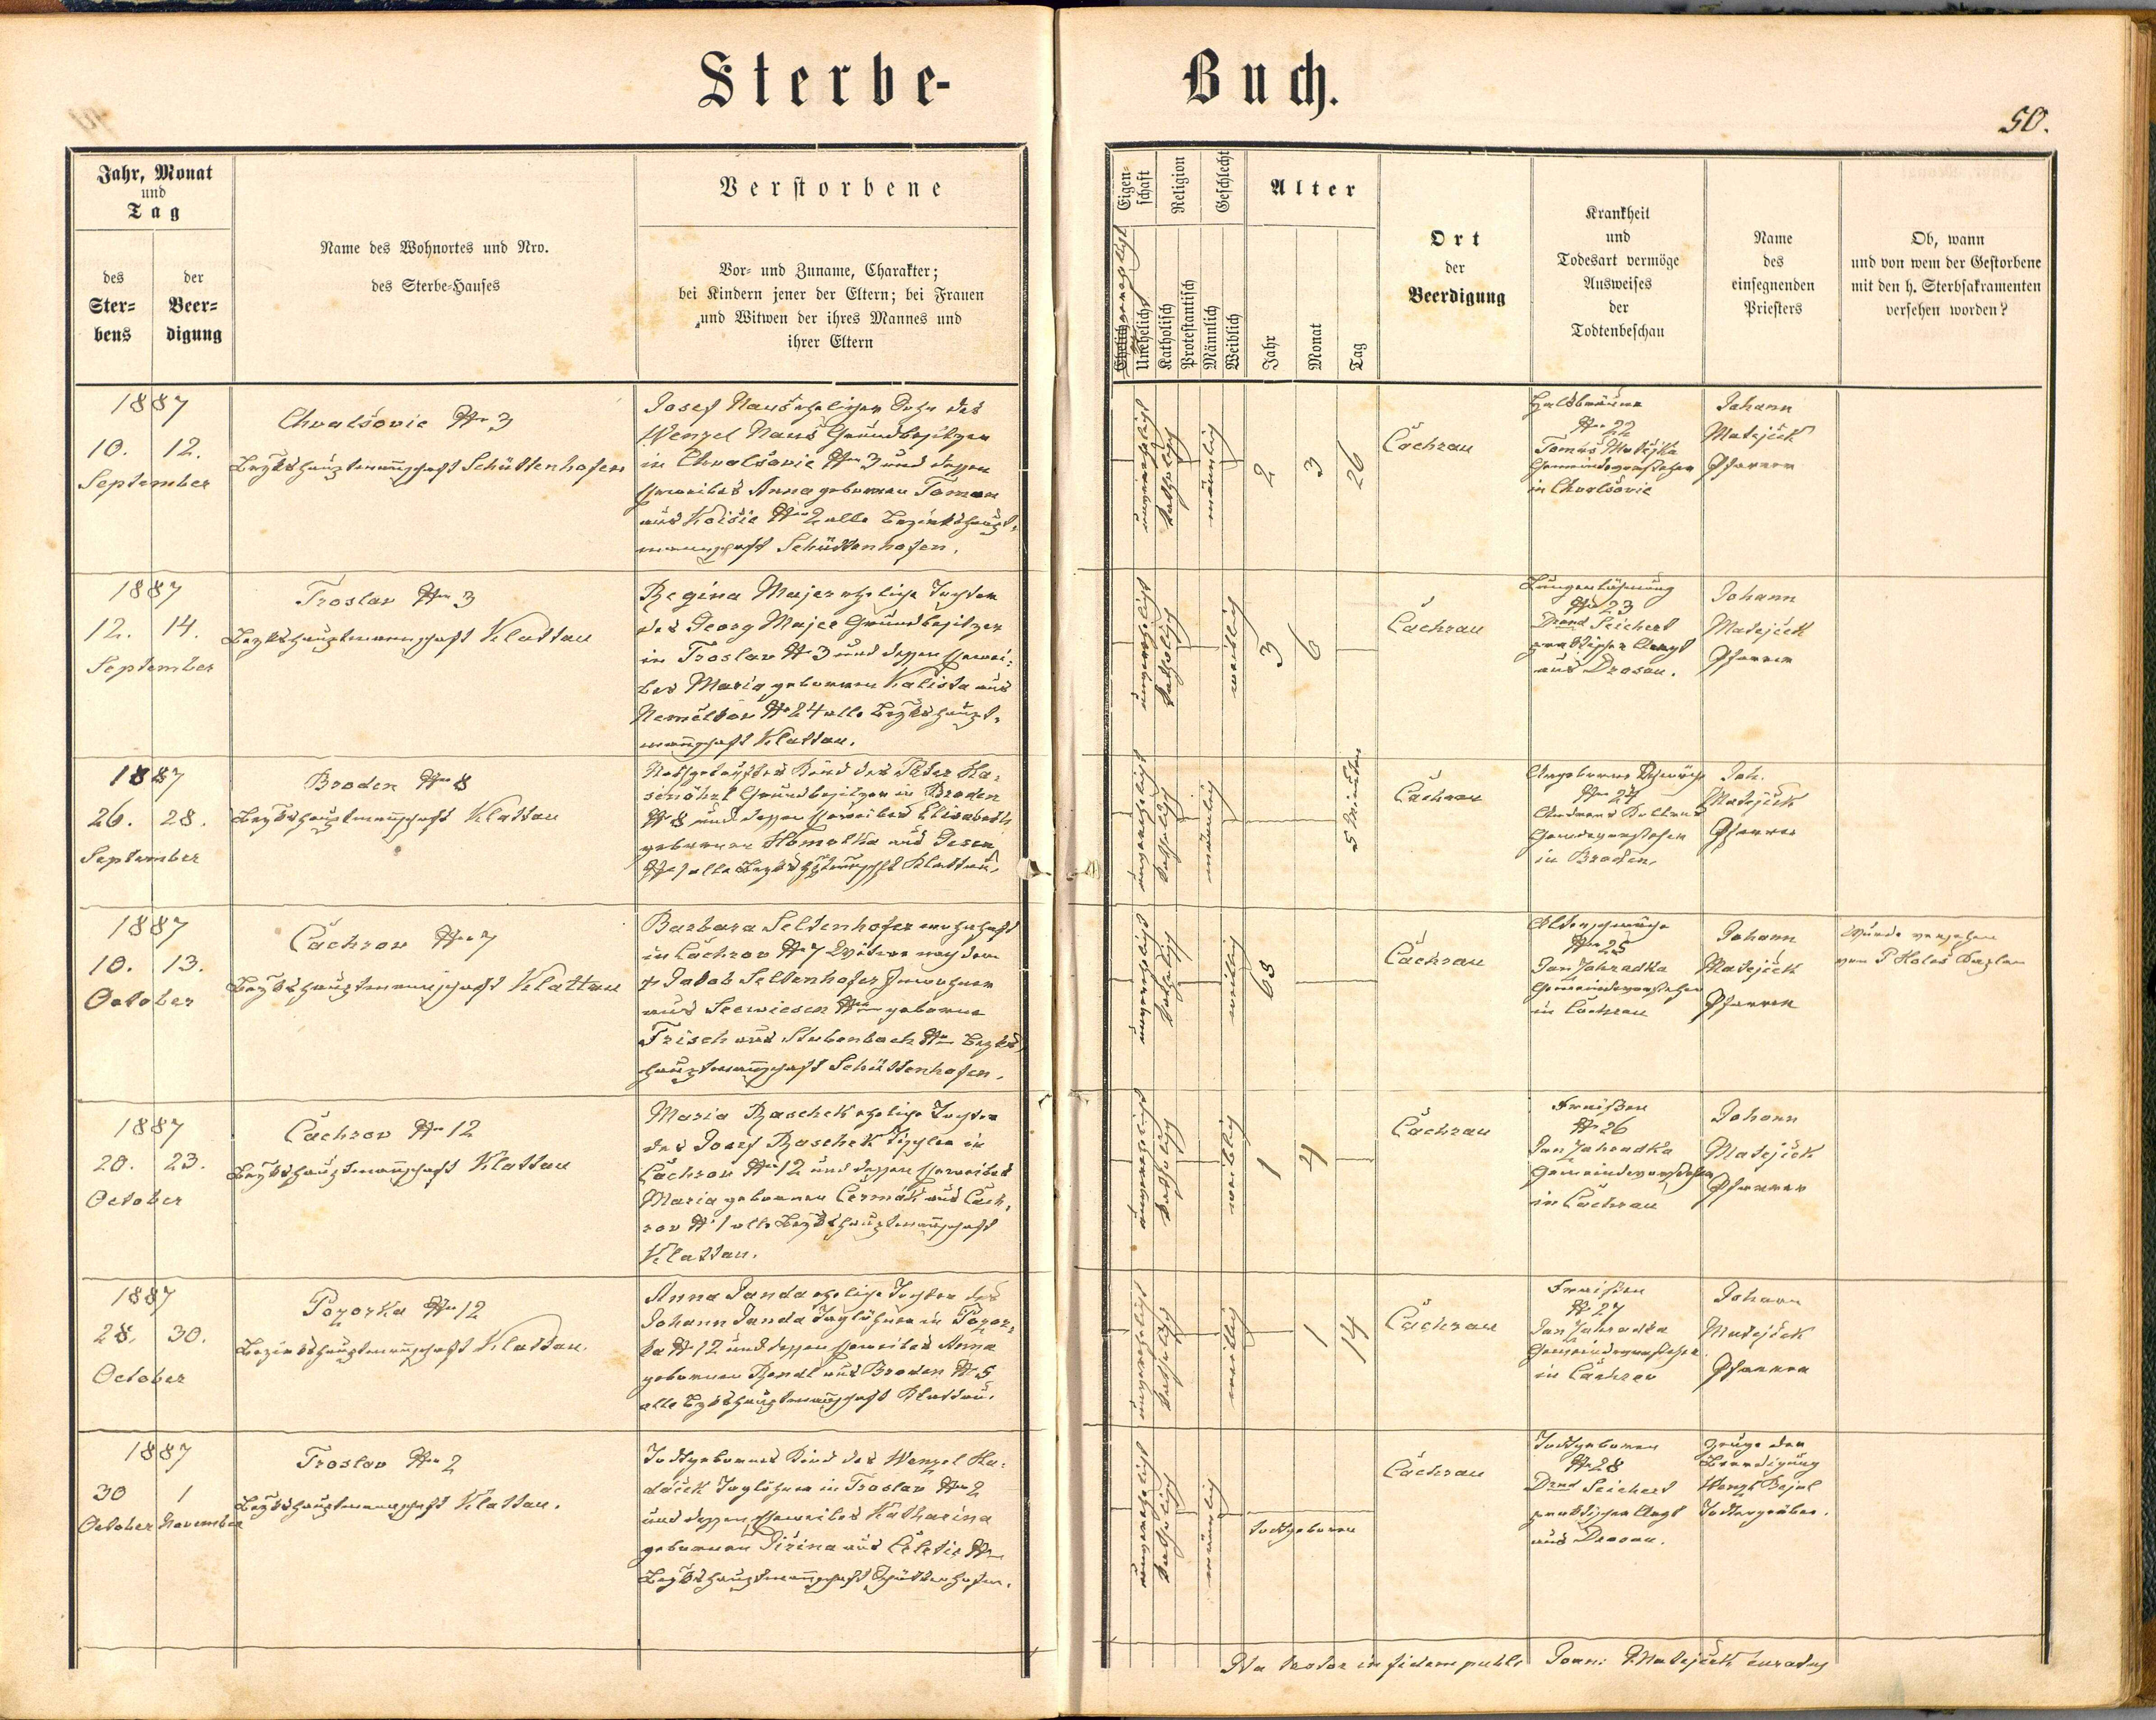 Sterbe-
Buch.
50.
Jahr, Monat
und
Tag
des
Ster=
bens
der
Beer=
digung
Name des Wohnortes und Nro.
des Sterbe-Hauses
Verstorbene
Vor- und Zuname, Charakter;
bei Kindern jener der Eltern; bei Frauen
und Witwen der ihres Mannes und
ihrer Eltern
Eigen-
schaft
Religion
Geschlecht
Alter
Unehelich
Katholisch
Protestantisch
Männlich
Weiblich
Jahr
Monat
Tag
Ort
der
Beerdigung
Krankheit
und
Todesart vermöge
Ausweises
der
Todtenbeschau
Name
des
einsegnenden
Priesters
Ob, wann
und von wem der Gestorbene
mit den h. Sterbsakramenten
versehen worden?
1887
10. 12.
September
Chvalšovic Nro 3
Bezirkshauptmannschaft Schüttenhofen
Josef Nauš ehelicher Sohn des
Wenzel Nauš Grundbesitzer
in Chvalšovic Nro 3 und dessen
Eheweibes Anna geborenen Toman
aus Nro 2 alle Bezirkshaupt=
mannschaft Schüttenhofen.
unverehelicht
katholisch
männlich
2
3
26
Čachrau
Halsbräune
Nro 22
Tomáš Matějka
Gemeindevorsteher
in Chvalšovic
Johann
Matějček
Pfarrer
1887
12. 14.
September
Troslav Nro 3
Bezkshauptmannschaft Klattau
Regina Majer eheliche Tochter
des Georg Majer Grundbesitzer
in Troslav Nr 3 und dessen Ehewei=
bes Maria geborenen Kalista aus
Nemělkov Nr 24 alle Bezkshaupt=
mannschaft Klattau.
unverehelicht
katholisch
weiblich
3
6
Čachrau
Lungenlähmung
Nro 23
Drand Seichert
praktischer Arzt
aus Drosau.
Johann
Matějček
Pfarrer
1887
26. 28.
September
Braden Nro 8
Bezkshauptmannschaft Klattau
Nothgetauftes Kind des Peter
Grundbesitzer in Braden
Nr 8 und dessen Eheweibes Elisabeth
geborenen Homolka aus Jesen
Nr 1 alle Klattau.
unverehelicht
katholisch
männlich
5 Minuten
Čachrau
Angeborene Schwäche
Nro 24
Gemeindevorsteher
in Braden.
Joh.
Matějček
Pfarrer
1887
10. 13.
October
Čachrov Nro 7
Bezkshauptmannschaft Klattau
Barbara Seltenhofer wohnhaft
in Čachrov Nr 7 Witwe nach dem
† Jakob Seltenhofer Inwohner
aus Seewiesen Nro geborene
Frisch aus Stubenbach Nro Bezks
hauptmannschaft Schüttenhofen.
unverehelicht
katholisch
weiblich
68
Čachrau
Altersschwäche
Nro 25
Jan Zahradka
Gemeindevorsteher
in Čachrau
Johann
Matějček
Pfarrer
Wurde versehen
von P Holas Kaplan
1887
20. 23.
October
Čachrov Nro 12
Bezkshauptmannschaft Klattau
Maria Raschek eheliche Tochter
des Josef Raschek Tischler in
Čachrov Nro 12 und dessen Eheweibes
Maria geborenen Čermák aus Čach,
rov Nr 1 alle Bezkshauptmannschaft
Klattau.
unverehelicht
katholisch
weiblich
1
4
Čachrau
Fraißen
Nr 26
Jan Zahradka
Gemeindevorsteher
in Čachrau
Johann
Matějček
Pfarrer
1887
28. 30.
October
Pozorka Nro 12
Bezirkshauptmannschaft Klattau.
Anna Janda eheliche Tochter des
Johann Janda Taglöhner in Pozor=
ka Nr 12 und dessen Eheweibes Anna
geborenen Rendl aus Braden Nr 5
alle Bezkshauptmannschaft Klattau.
unverehelicht
katholisch
weiblich
1
14
Čachrau
Fraißen
Nr 27
Jan Zahradka
Gemeindevorsteher
in Čachrov
Johann
Matějček
Pfarrer
1887
30 1
October November
Troslav Nro 2
Bezkshauptmannschaft Klattau.
Todtgeborenes Kind des Wenzel Hu=
dáček Taglöhner in Troslav Nro 2
und dessen Eheweibes Katharina
geborenen Jiřina aus Čeletic Nro
Bezkshauptmannschaft Schüttenhofen.
unverehelicht
katholisch
männlich
todtgeboren
Čachrau
Todtgeboren
Nr 28
Drand Seichert
praktischer Arzt
aus Drosau.
Zeuge der
Beerdigung
Wenzl
Todtengräber.
Ita testor in fidem publ. Joan: Matějček curatus